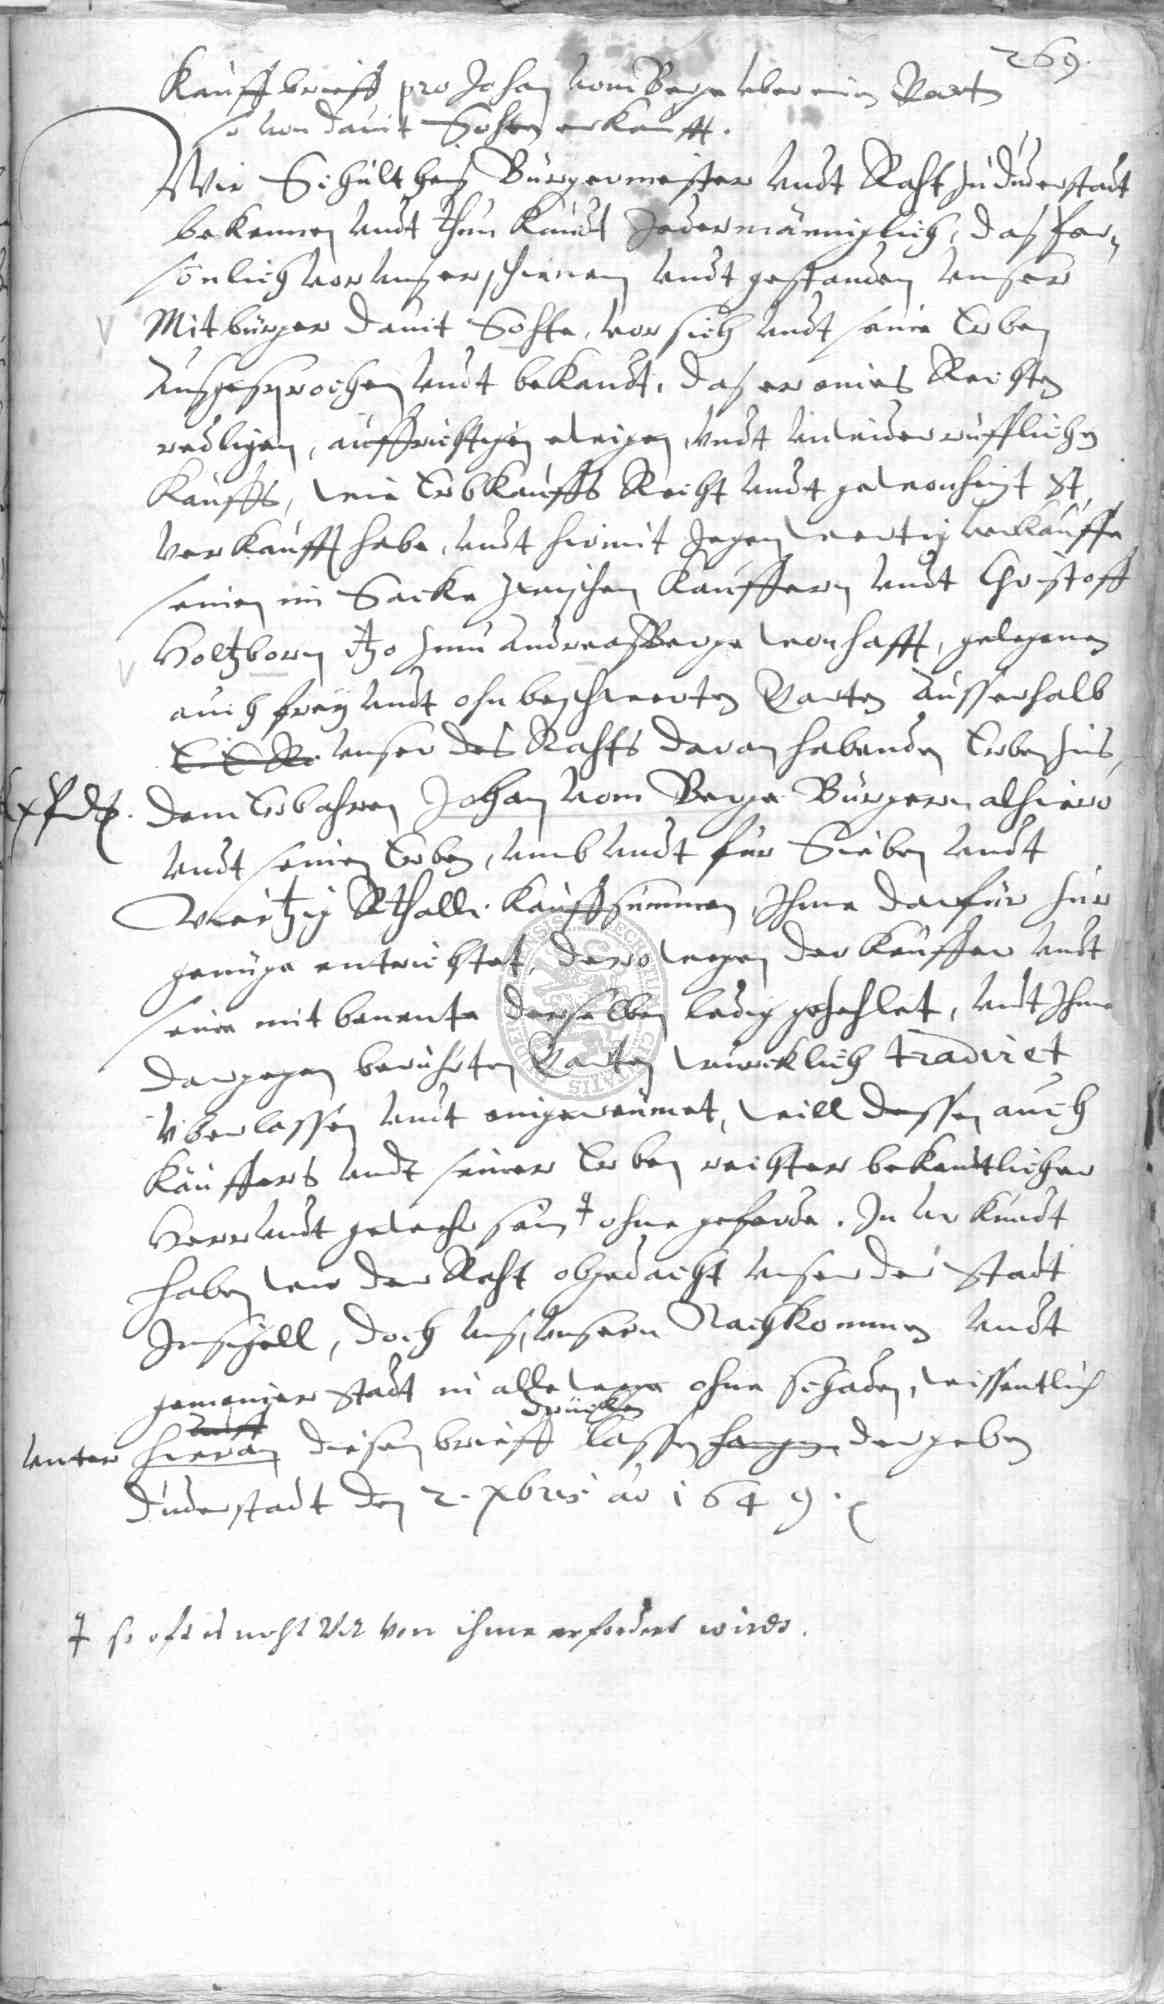 269.
Kauffbrieff pro Johan vom Berge uber einen Garten
so von Davit Sohten erkaufft.
Wir Schultheis Bürgermeister undt Raht zu Duderstadt
bekennen undt thun kundt Jedermänniglich, das per-
sönlich vor unß erschienen undt gestanden unser
Mitbürger Davit Sohte, vor sich undt seine Erben
Außgesprochen undt bekandt, das er eines Rechten
redligen, auffrichtigen ewigen, undt unwiderrufflichen
Kauffs, wie Erbkauffs Recht undt gewonheit ist,
verkaufft habe, undt hiemit Jegenwertig verkauffe
seinen im Sacke zwischen Kauffern undt Christoff
Holtzborn itzo zum Andreasberge wonhafft, gelegenen
auch frey undt ohnbeschwerten Garten Ausserhalb
unser des Rahts daran habenden Erbenzins,
dem Erbahren Johan vom Berge Bürgern alhiero
undt seinen Erben, umb undt für Sieben undt
Viertzig Rthaller Kauffsummen, Ihme dafür zur
genüge entrichtet, derowegen der Kauffer undt
seine mit benente derselben ledig gezehlet, undt Ihme
dargegen berührten Garten würcklich tradiret
überlassen undt eingereumet, will dessen auch
Käuffers undt seiner Erben rechter bekentlicher
Herr undt gewehr sein ‡ ohne geferde. In Urkundt
haben wir der Raht obgedacht unser der Stadt
Insigell, doch uns, unsern Nachkommen undt
gemeiner Stadt in allewege ohne schaden, wissentlich
auff drücken
unter hieran diesen brieff lassen hangen der geben
Duderstadt den 2. Xbris ao 1649.
‡ so oft es noht undt von ihme erfordert wirdt.